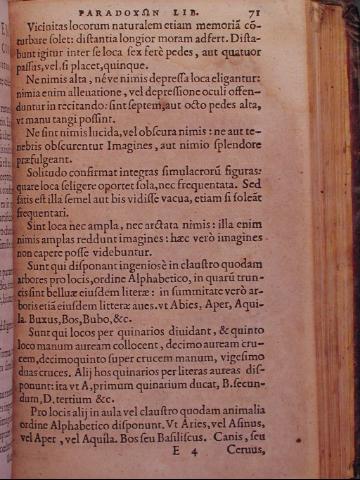 PARADOXΩN LIB. 71
Vicinitas locorum naturalem etiam memoriā cō-
turbare solet: distantia longior moram adfert. Dista-
bunt igitur inter se loca sex ferè pedes, aut quatuor
passus, vel, si placet, quinque.
Ne nimis alta, néve nimis depressa loca eligantur:
nimia enim alleuatione, vel depressione oculi offen-
duntur in recitando: sint septem, aut octo pedes alta,
vt manu tangi possint.
Ne sint nimis lucida, vel obscura nimis: ne aut te-
nebris obscurentur Imagines, aut nimio splendore
præfulgeant.
Solitudo confirmat integras simulacrorū figuras:
quare loca seligere oportet sola, nec frequentata. Sed
satis est illa semel aut bis vidisse vacua, etiam si soleāt
frequentari.
Sint loca nec ampla, nec arctata nimis: illa enim
nimis amplas reddunt imagines: hæc verò imagines
non capere posse videbuntur.
Sunt qui disponant ingeniosè in claustro quodam
arbores pro locis, ordine Alphabetico, in quarū trun-
cis sint belluæ eiusdem literæ: in summitate verò ar-
boris etiā eiusdem litteræ aues. vt Abies, Aper, Aqui-
la. Buxus, Bos, Bubo, &c.
Sunt qui locos per quinarios diuidant, & quinto
loco manum auream collocent, decimo auream cru-
cem, decimoquinto super crucem manum, vigesimo
duas cruces. Alij hos quinarios per literas aureas dis-
ponunt: ita vt A, primum quinarium ducat, B. secun-
dum, D. tertium &c.
Pro locis alij in aula vel claustro quodam animalia
ordine Alphabetico disponunt. Vt Aries, vel Asinus,
vel Aper, vel Aquila. Bos seu Basiliscus. Canis, seu
E 4 Ceruus,